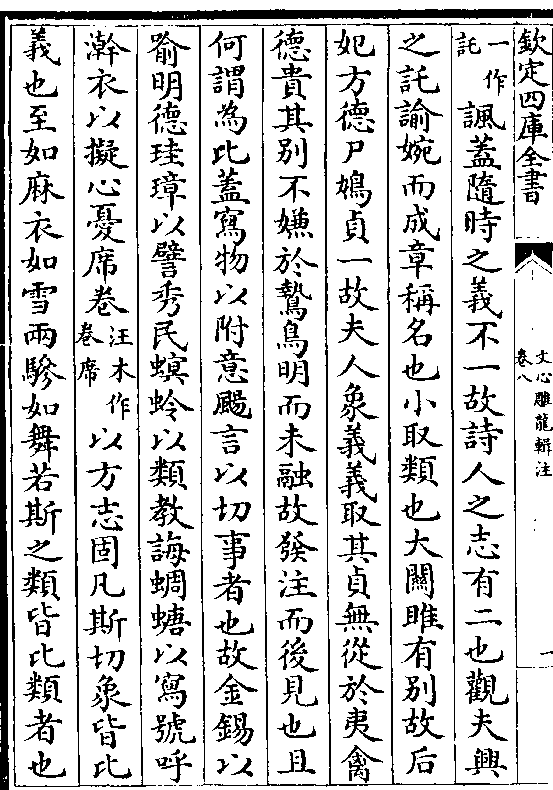 欽定四庫全書
文心雕龍輯注
卷八
一
一作託諷蓋隨時之義不一故詩人之志有二也觀夫興
之託諭婉而成章稱名也小取類也大關雎有別故后
妃方德尸鳩貞一故夫人象義義取其貞無從於夷禽
德貴其別不嫌於鷙鳥明而未融故發注而後見也且
何謂為比蓋寫物以附意颺言以切事者也故金錫以
喻明德珪璋以譬秀民螟蛉以類教誨蜩螗以寫號呼
澣衣以擬心憂席卷汪本作卷席以方志固凡斯切象皆比
義也至如麻衣如雪兩驂如舞若斯之類皆比類者也